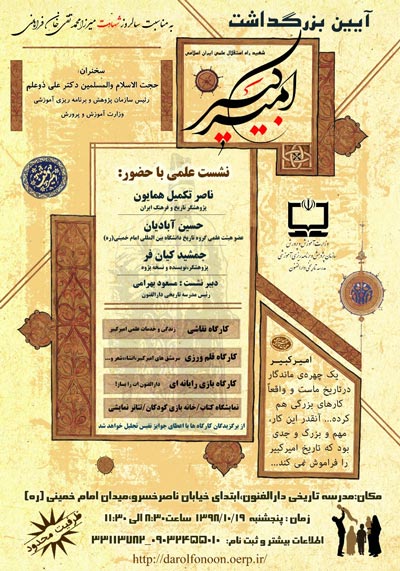 آیین بزرگداشت
به مناسبت سالروز شهادت میرزا محمدتقی خان فراهانی
شهید راه استقلال علمی ایران اسلامی
امیرکبیر
سخنران:
حجت الاسلام والمسلمین دکتر علی ذوعلم
رئیس سازمان پژوهش و برنامه ریزی آموزشی
وزارت آموزش و پرورش
نشست علمی با حضور:
ناصر تکمیل همایون
پژوهشگر تاریخ و فرهنگ ایران
حسین آبادیان
عضو هیئت علمی گروه تاریخ دانشگاه بین المللی امام خمینی(ره)
جمشید کیان فر
پژوهشگر،نویسنده و نسخه پژوه
دبیر نشست : مسعود بهرامی
رئیس مدرسه تاریخی دارالفنون
وزارت آموزش و پرورش
سازمان پژوهش و برنامه ریزی آموزشی
مدرسه تاریخی دارالفنون
کارگاه نقاشی زندگی و خدمات علمی امیرکبیر
کارگاه قلم ورزی سرمشق های امیرکبیر،انشاء،شعر و...
کارگاه بازی رایانه ای دارالفنون اب را بساز!
نمایشگاه کتاب/خانه بازی کودکان/تئاتر نمایشی
از برگزیدگان کارگاه ها با اعطای جوایز نفیس تجلیل خواهد شد
امیرکبیر
یک چهره‌ی ماندگار
درتاریخ ماست و واقعاً
کارهای بزرگی هم
کرده... آنقدر این کار،
مهم و بزرگ و جدی
بود که تاریخ امیرکبیر
را فراموش نمی کند...
مکان:مدرسه تاریخی دارالفنون،ابتدای خیابان ناصرخسرو،میدان امام خمینی (ره)
زمان : پنجشنبه ۱۳۹۸/۱۰/۱۹ ساعت:۸:۳۰ الی ۱۱:۳۰
اطلاعات بیشتر و ثبت نام: ۰۹۰۳۲۴۵۵۰۱۰_۳۳۱۱۳۷۸۲
ظرفیت محدود
http://darolfonoon.oerp.ir/